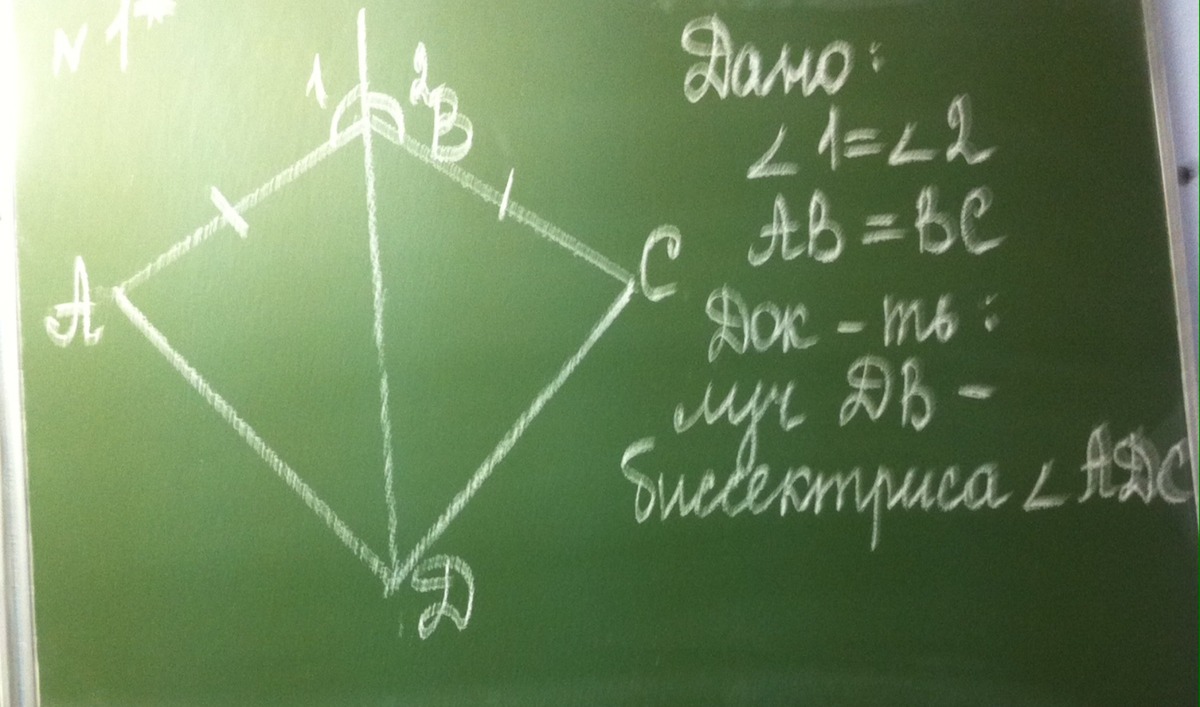 N 1*
1 2
B
A
C
D
Дано:
∠1=∠2
AB=BC
Док-ть:
луч DB -
биссектриса ∠ADC